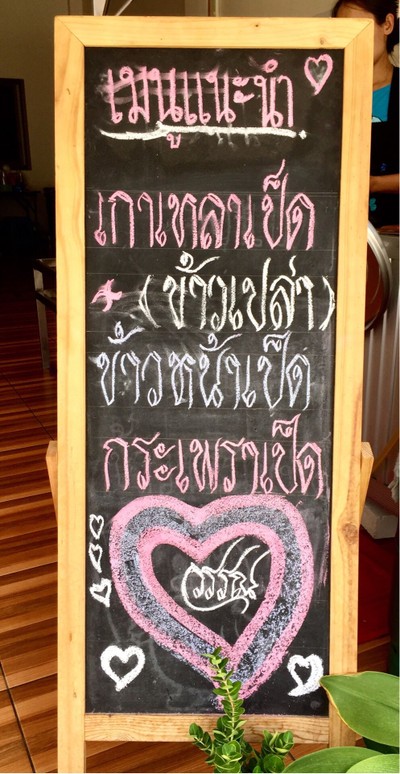 เมนูแนะนำ
เกาเหลาเป็ด
+ (ข้าวเปล่า)
ข้าวหน้าเป็ด
กระเพราเป็ด